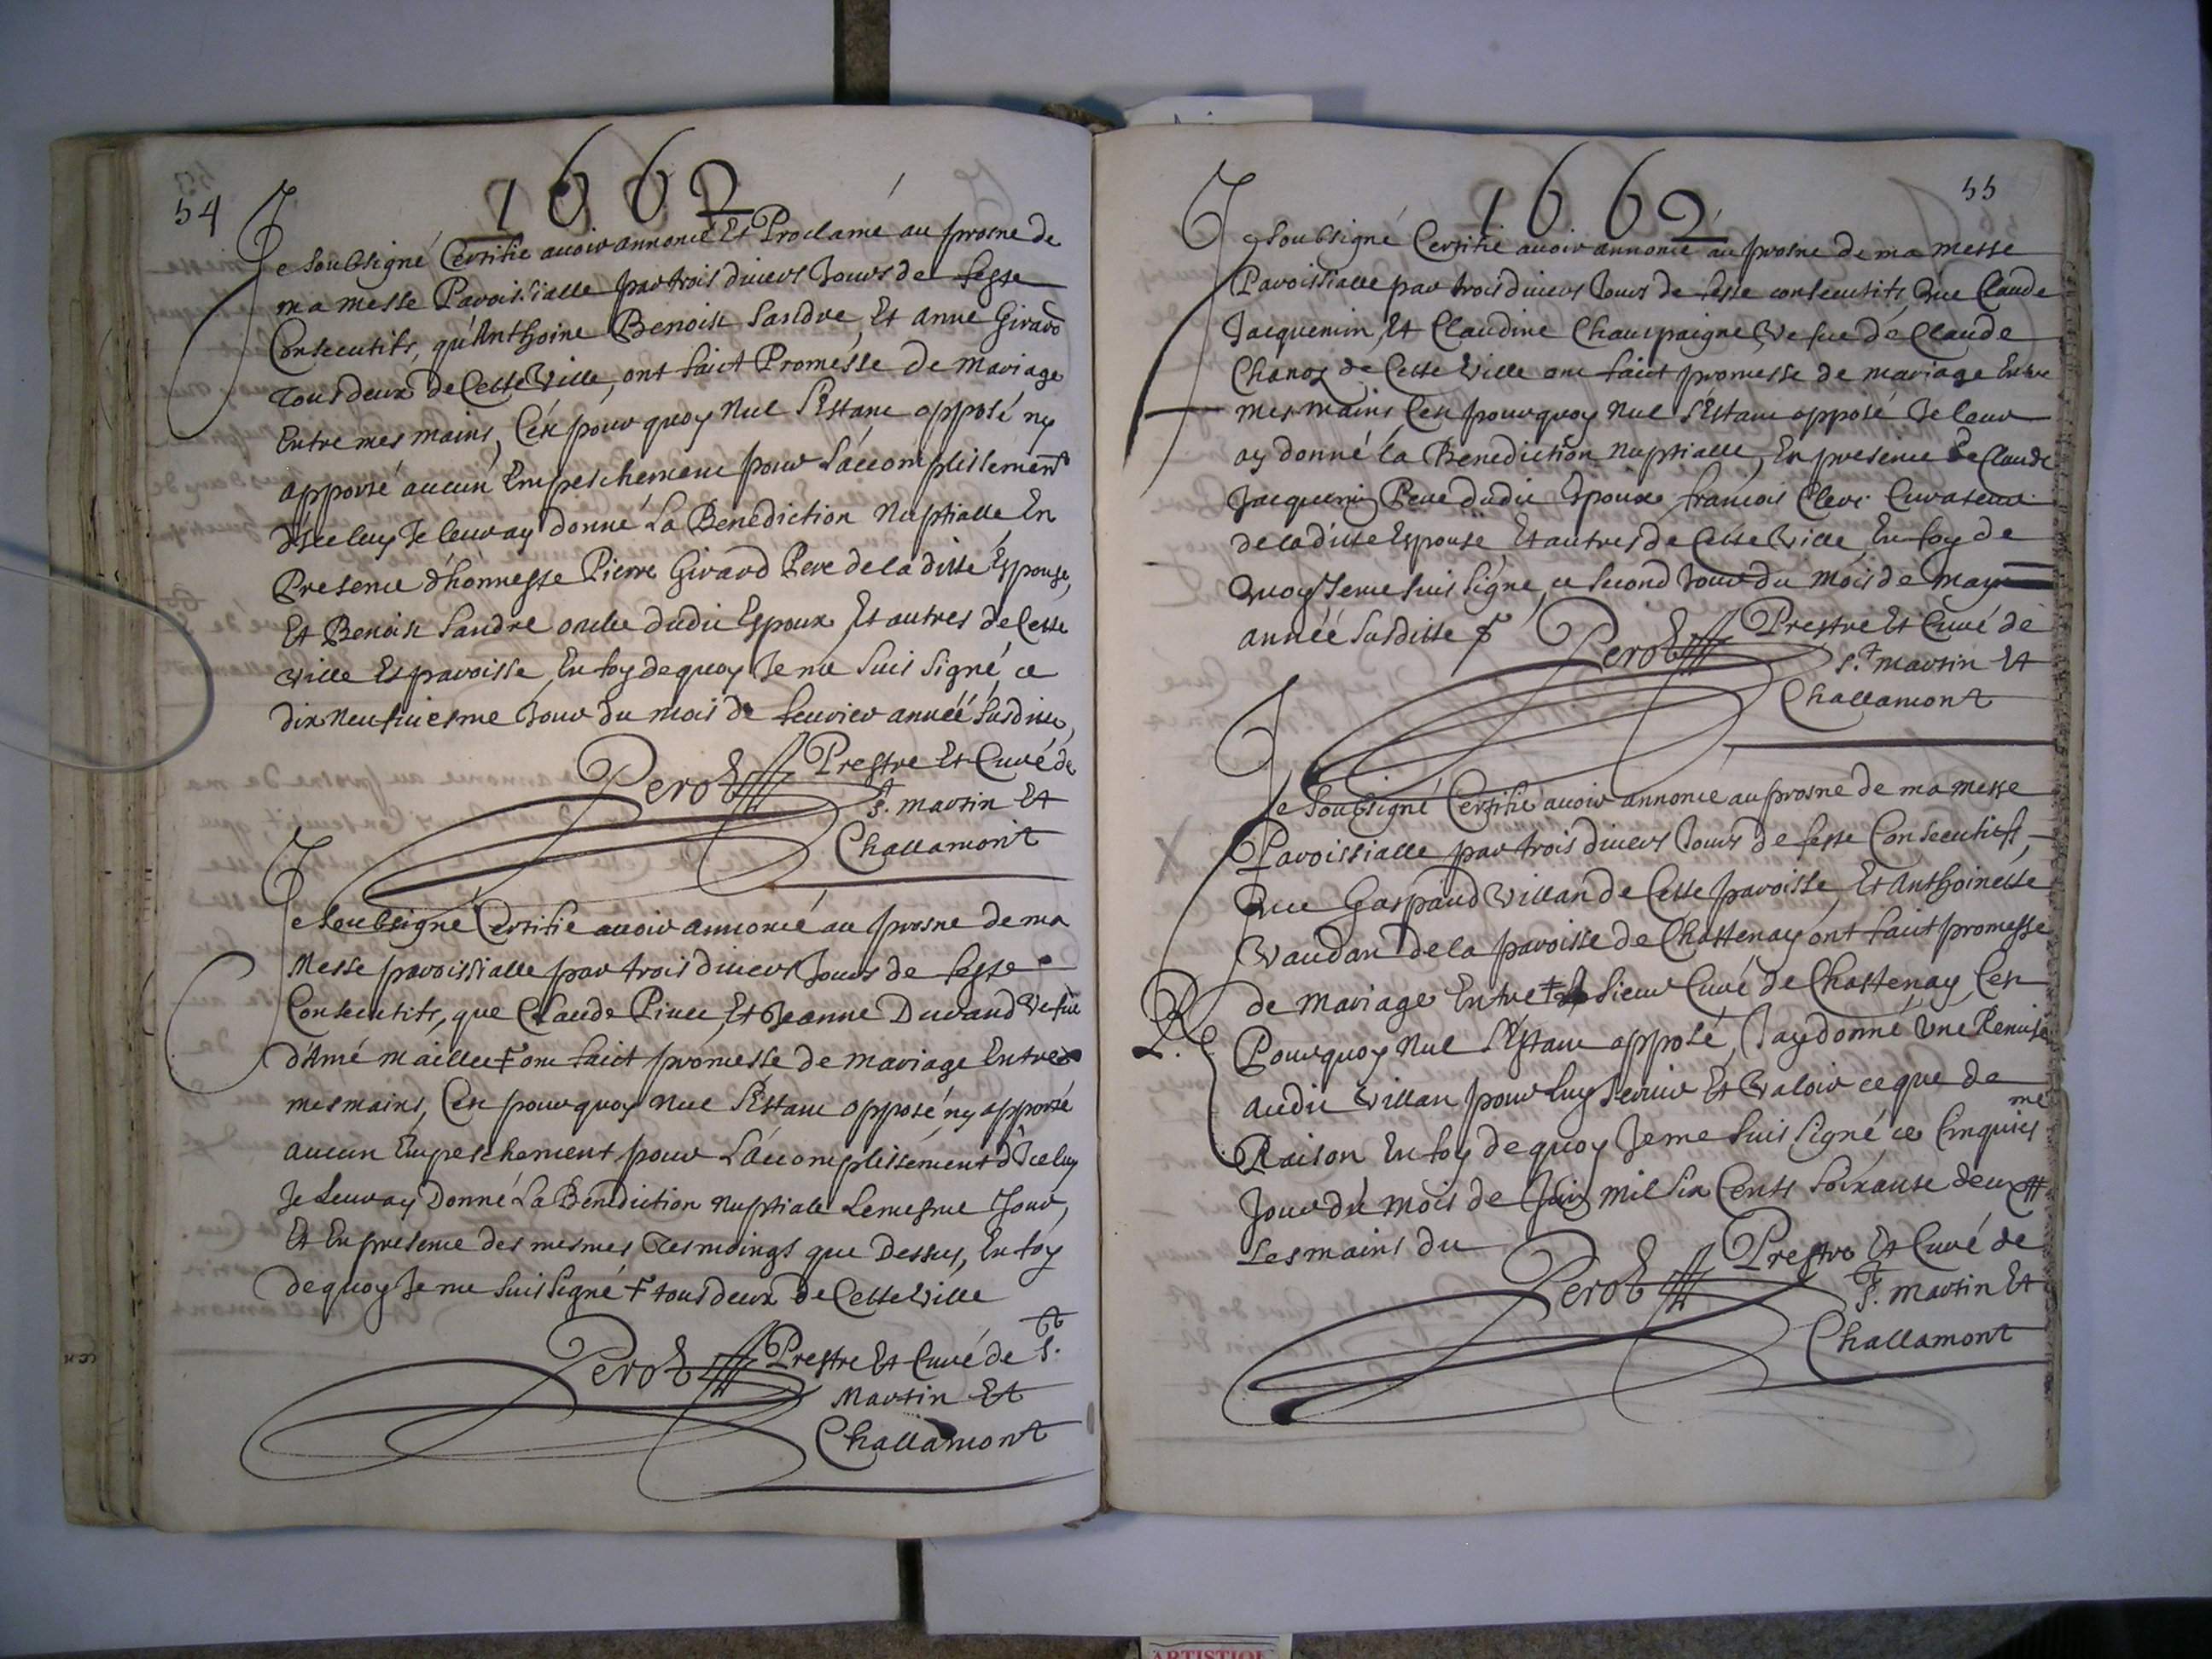 54
1662
Je Soubsigné Certifie avoir annoncé Et Proclamé au prosne de
ma messe Paroissialle par trois divers Jours de feste
Consecutifs, qu'Anthoine Benoist Sandre, Et anne Girard
tous deux de Cette Ville, ont faict Promesse de Mariage
Entre mes mains, C'est pour quoy Nul S'Estant opposé ny
apporté aucun Empeschement pour L'accomplissement
d'Iceluy Je leur ay donné La Benediction Nuptialle En
Presence d'honneste Pierre Girard Pere de la ditte Espouse,
Et Benoist Sandre oncle dudit Espoux Et autres de Cette
Ville Et paroisse En foy de quoy Je me Suis Signé ce
dix Neufviesme Jour du mois de feuvrier année Susditte,
Perot Prestre Et Curé de
S. martin Et
Challamont
Je Soubsigné Certifie avoir annoncé au prosne de ma
Messe paroissialle par trois divers Jours de feste
Consecutifs, que Claude Et Jeanne Durand Vefue
d'Amé ont faict promesse de mariage Entre
mes mains, C'est pourquoy Nul S'Estant opposé ny apporté
aucun Empeschement pour L'accomplissement d'Iceluy
Je Leur ay Donné La Benediction Nuptiale Le mesme Jour,
Et En presence des mesmes Tesmoings que Dessus, En foy
de quoy Je me Suis Signé + tous deux de Cette Ville
Perot Prestre Et Curé de St.
Martin Et
Challamont
55
1662
Je Soubsigné Certifie avoir annoncé au prosne de ma messe
Paroissialle par trois divers Jours de feste consecutifs, Que Claude
Jacquemin, Et Claudine Champaigne Vefue de Claude
Chanoz de Cette Ville ont faict promesse de mariage Entre
mes mains C'est pourquoy Nul S'Estant opposé Je leur
ay donné la Benediction Nuptialle, En presence de Claude
Jacquemin Pere dudit Espoux francois Clerc Curateur
de la ditte Espouse, Et autres de Cette Ville, En foy de
Quoy Je me suis Signé, ce Second Jour du Mois de May
année Susditte
Perot Prestre Et Curé de
St. martin Et
Challamont
Je Soubsigné Certifie avoir annoncé au prosne de ma messe
Paroissialle par trois divers Jours de feste Consecutifs,
Que Gaspard Villan de Cette paroisse, Et Anthoinette
Vaudan de la paroisse de Chastenay ont faict promesse
de Mariage Entre + Sieur Curé de Chastenay C'est
Pourquoy Nul S'Estant opposé, J'ay donné Une Remise
R.
audit Villan pour luy Servir Et Valoir ce que de
Raison En foy de quoy Je me Suis Signé ce Cinquies
me
Jour du Mois de Juin Mil Six Cents Soixante deux +
Les mains du
Perot Prestre Et Curé de
St. martin Et
Challamont
ARTISTIQUE